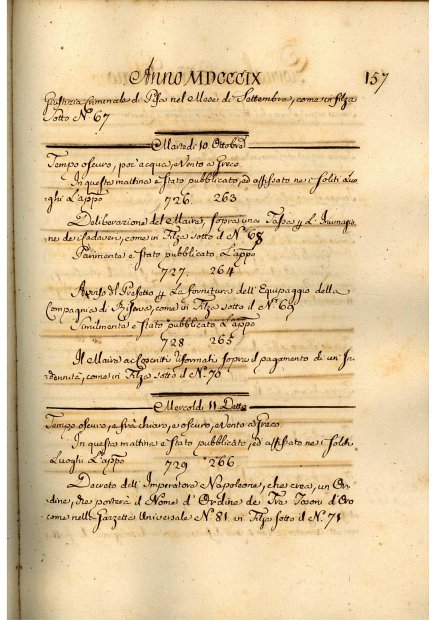 Anno MDCCCIX 157
Giustizia Criminale di Pisa nel Mese di Settembre, come in Filza
Sotto N.° 67
Martedì 10. Ottobre
Tempo oscuro, poi acqua, e Vento a Greco.
In questa mattina è stato pubblicato, ed affissato nei soliti Luo-
ghi L'appo
726. 263
Deliberazione del Maire, sopra una Tassa p. L'Inumazio-
ne dei Cadaveri, come in Filza sotto d. N.° 68
Parimente è stato pubblicato L'appo
727. 264
Avviso del Prefetto p. La fornitura dell'Equipaggio della
Compagnia di Riserva, come in Filza sotto d. N.° 69
Similmente è stato pubblicato L'appo
728 265
Il Maire ai Coscritti Riformati sopra il pagamento di un In-
dennità, come in Filza sotto d. N.° 70
Mercoldì 11. Detto
Tempo oscuro, e frà chiaro, e oscuro, e Vento a Greco.
In questa mattina è stato pubblicato, ed affissato nei soliti
Luoghi L'appo
729 266
Decreto dell'Imperatore Napoleone, che crea, un Or-
dine, che porterà il Nome d'Ordine de Tre Tosoni d'Oro
come nella Gazzetta Universale N.° 81 in Filza sotto d. N.° 71